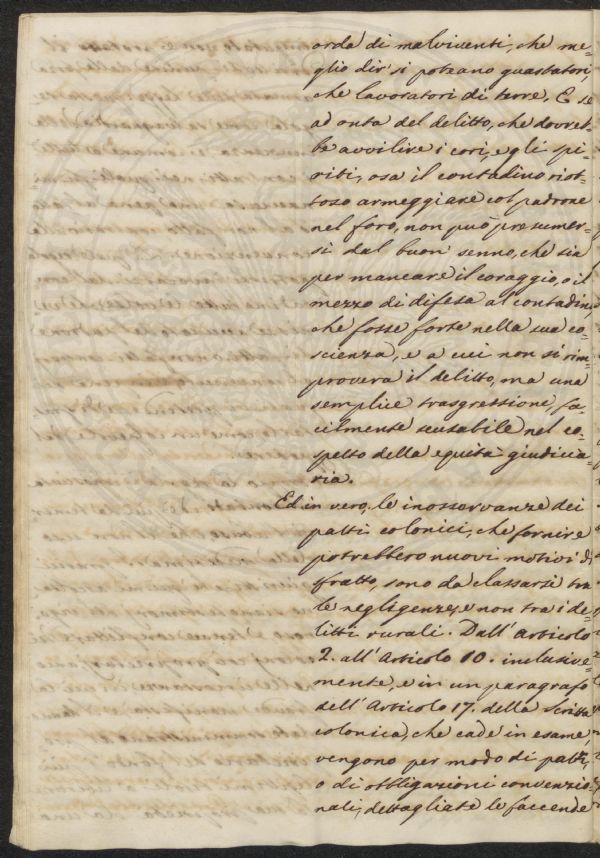 orda di malviventi, che me=
glio dir si poteano guastatori,
che lavoratori di terre, E se
ad onta del delitto, che dovreb=
be avvilire i cori, e gli spi=
riti, osa il contadino riot=
toso armeggiare col padrone
nel foro, non può presumer=
si dal buon senno, che sia
per mancare il coraggio, o il
mezzo di difesa al contadino,
che fosse forte nella sua co=
scienza, e a cui non si rim=
provera il delitto, ma una
semplice trasgressione, fa=
cilmente scusabile nel co=
spetto della equità giudicia=
ria.
Ed in vero, le inosservanze dei
patti colonici, che fornire
potrebbero nuovi motivi di
sfratto, sono da classarsi tra
le negligenze, e non tra i de=
litti rurali. Dall' Articolo
2. all' Articolo 10. inclusive=
mente, e in un paragrafo
dell' Articolo 17. della Scritta
colonica, che cade in esame,
vengono per modo di patti,
o di obbligazioni convenzio=
nali, dettagliate le faccende